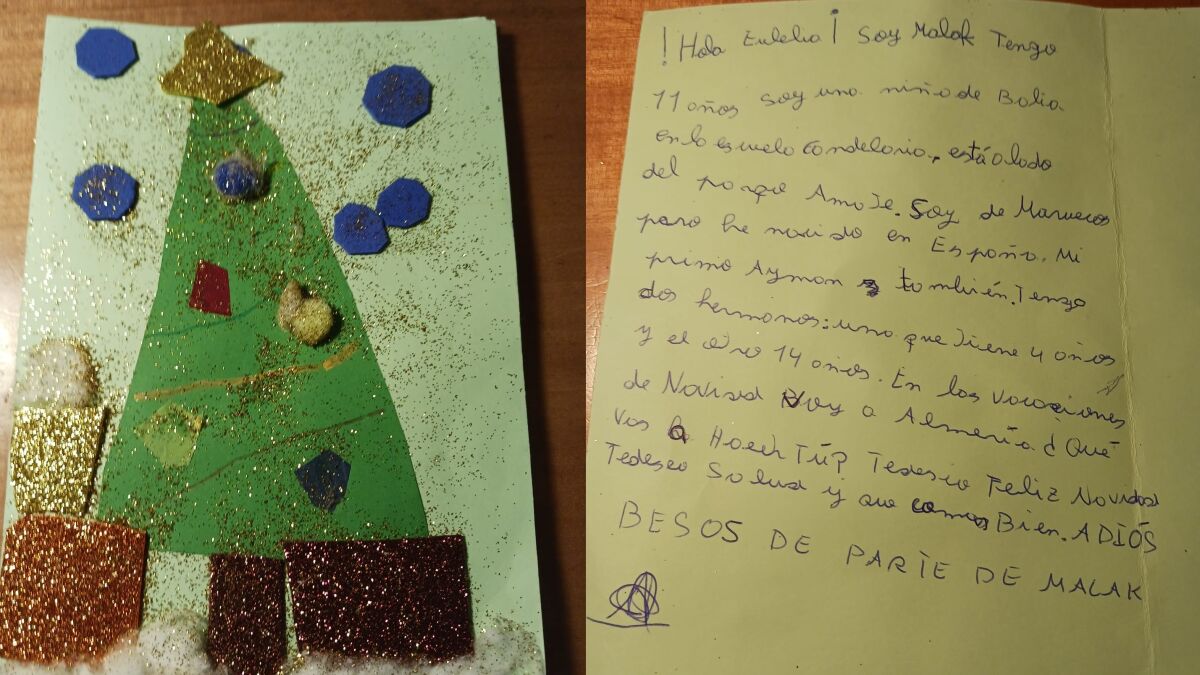 ! Hola Eulelia ¡ Soy Malak Tengo
11 años soy una niña de Balia
en la escuela Candelaria, está a lado
del parque Amate. Soy de Marruecos
pero he nacido en España. Mi
primo Ayman también. Tengo
dos hermanos: uno que tiene 4 años
y el otro 14 años. En las vacaciones
de Navidad Voy a Almería ¿ Qué
Vas a Hacer Tú? Te deseo Feliz Navidad
Te deseo Salud y que comas Bien. ADIÓS
BESOS DE PARTE DE MALAK